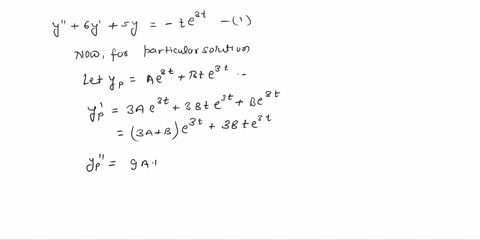 y'' + 6y' + 5y = - te^{3t} - (1)
Now, for particular solution
Let y_p = Ae^{3t} + Bt e^{3t} ..
y_p' = 3A e^{3t} + 3Bt e^{3t} + Be^{3t}
= (3A+B) e^{3t} + 3Bt e^{3t}
y_p'' = 9A.